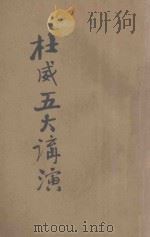 杜威五大講演
www.mtoou.info